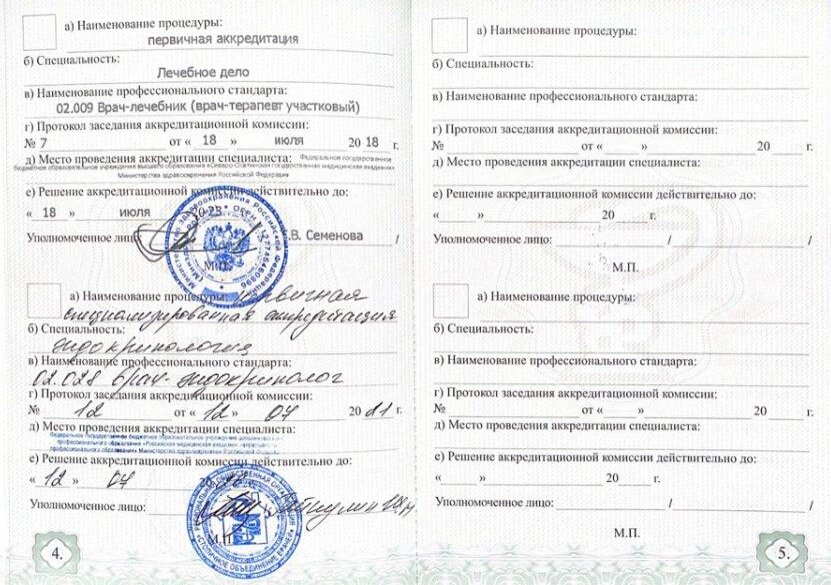 а) Наименование процедуры:
первичная аккредитация
б) Специальность:
Лечебное дело
в) Наименование профессионального стандарта:
02.009 Врач-лечебник (врач-терапевт участковый)
г) Протокол заседания аккредитационной комиссии:
№ 7 от « 18 » июля 2018 г.
д) Место проведения аккредитации специалиста: Федеральное государственное
бюджетное образовательное учреждение высшего образования «Северо-Осетинская государственная медицинская академия»
Министерства здравоохранения Российской Федерации
е) Решение аккредитационной комиссии действительно до:
« 18 » июля 2023
Уполномоченное лицо: Е.В. Семенова /
М.П.
а) Наименование процедуры: первичная
специализированная аккредитация
б) Специальность:
эндокринология
в) Наименование профессионального стандарта:
02.028 врач-эндокринолог
г) Протокол заседания аккредитационной комиссии:
№ 12 от « 12 » 07 20 г.
д) Место проведения аккредитации специалиста:
Федеральное государственное бюджетное образовательное учреждение дополнительного
профессионального образования «Российская медицинская академия непрерывного
профессионального образования» Министерства здравоохранения Российской Федерации
е) Решение аккредитационной комиссии действительно до:
« 12 » 07 20
Уполномоченное лицо:
М.П.
РЕГИОНАЛЬНАЯ ОБЩЕСТВЕННАЯ ОРГАНИЗАЦИЯ
«СТОЛИЧНОЕ ОБЪЕДИНЕНИЕ ВРАЧЕЙ»
4.
а) Наименование процедуры:
б) Специальность:
в) Наименование профессионального стандарта:
г) Протокол заседания аккредитационной комиссии:
№ от « » 20 г.
д) Место проведения аккредитации специалиста:
е) Решение аккредитационной комиссии действительно до:
« » 20 г.
Уполномоченное лицо: / /
М.П.
а) Наименование процедуры:
б) Специальность:
в) Наименование профессионального стандарта:
г) Протокол заседания аккредитационной комиссии:
№ от « » 20 г.
д) Место проведения аккредитации специалиста:
е) Решение аккредитационной комиссии действительно до:
« » 20 г.
Уполномоченное лицо: / /
М.П.
5.